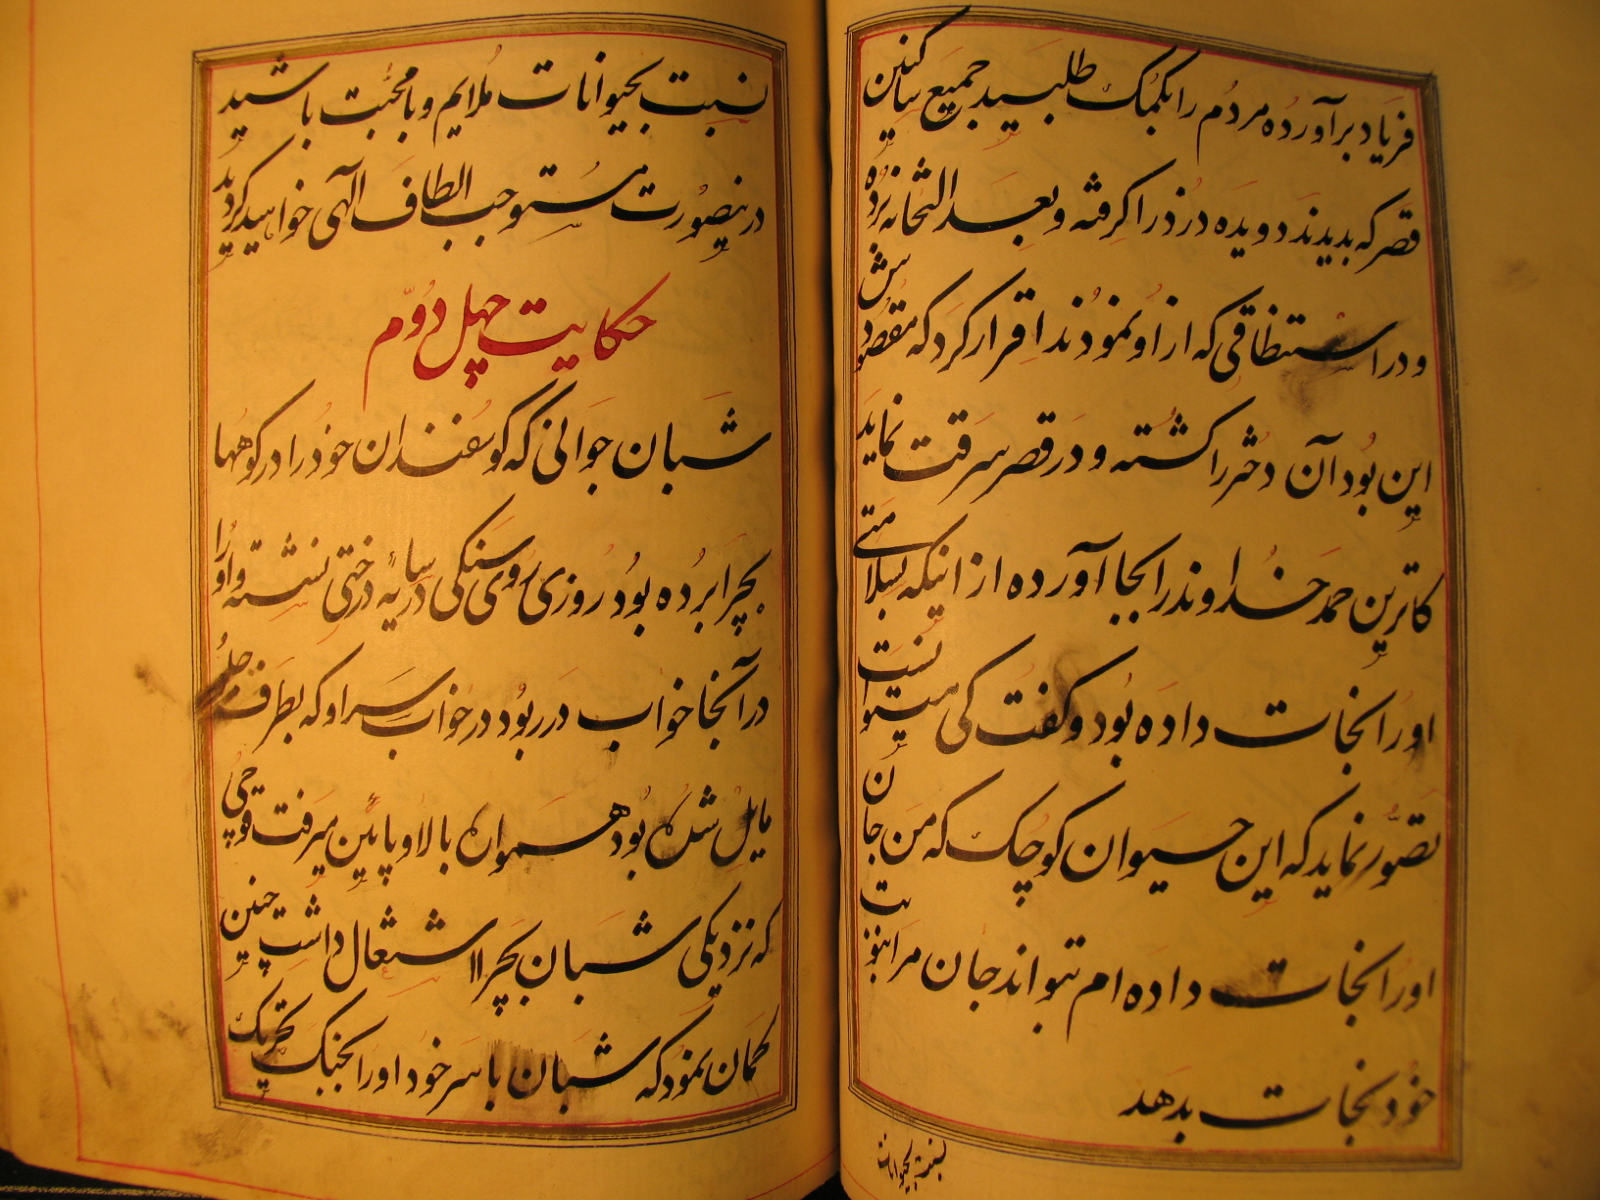 فریاد برآورده مردم را بکمک طلبید جمیع ساکنین
قصر که بدیدند دویده دزد را گرفته و بعدالتخانه بردند
و در استنطاقی که از او نمودند اقرار کرد که مقصودش
این بود آن دختر را کشته و در قصر سرقت نماید
کاترین حمد خداوند را بجا آورده از اینکه بسلامتی
او را نجات داده بود و گفت کی میتوانست
تصوّر نماید که این حیوان کوچک که من جان
او را نجات داده ام بتواند جان مرا بنوبت
خود نجات بدهد
نسبت بحیوانات
نسبت بحیوانات ملایم و با محبّت باشید
درینصورت مستوجب الطاف الهی خواهید گردید
حکایت چهل دوّم
شبان جوانی که گوسفندان خود را در کوهها
بچرا برده بود روزی روی سنگی در سایه درختی نشسته و او را
در آنجا خواب در ربود در خواب سر او که بطرف جلو
مایل شده بود همواره بالا و پائین میرفت قوچی
که نزدیکی شبان بچرا اشتغال داشت چنین
گمان نمود که شبان با سر خود او را بجنگ تحریک